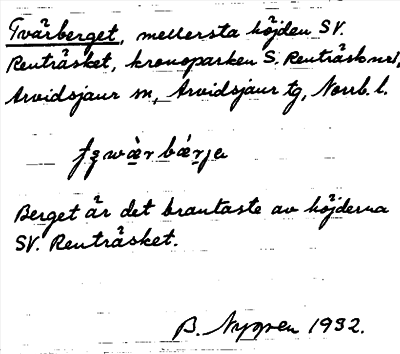 Tvärberget, mellersta höjden SV.
Renträsket, kronoparken S. Renträsk nr 1,
Arvidsjaur sn, Arvidsjaur tg, Norrb. l.
Berget är det brantaste av höjderna
SV. Renträsket.
B. Nygren 1932.